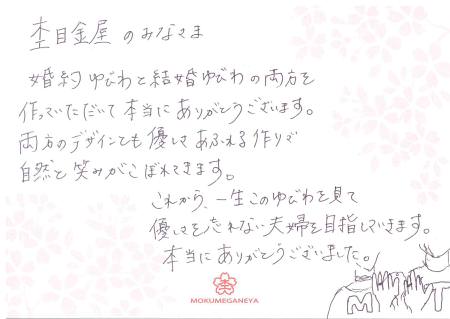 杢目金屋のみなさま
婚約ゆびわと結婚ゆびわの両方を
作っていただいて本当にありがとうございます。
両方のデザインとも優しさあふれる作りで
自然と笑みがこぼれてきます。
これから、一生このゆびわを見て
優しさを忘れない夫婦を目指していきます。
本当にありがとうございました。
M T
MOKUMEGANEYA